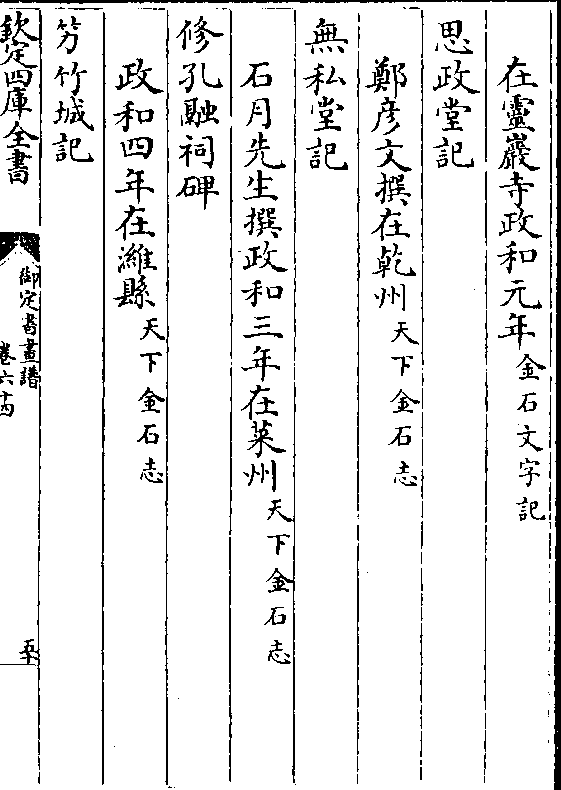 在靈巖寺政和元年金石文字記
思政堂記
鄭彦文撰在乾州天下金石志
無私堂記
石月先生撰政和三年在萊州天下金石志
修孔融祠碑
政和四年在濰縣天下金石志
竻竹城記
欽定四庫全書
御定書畫譜
卷六十四